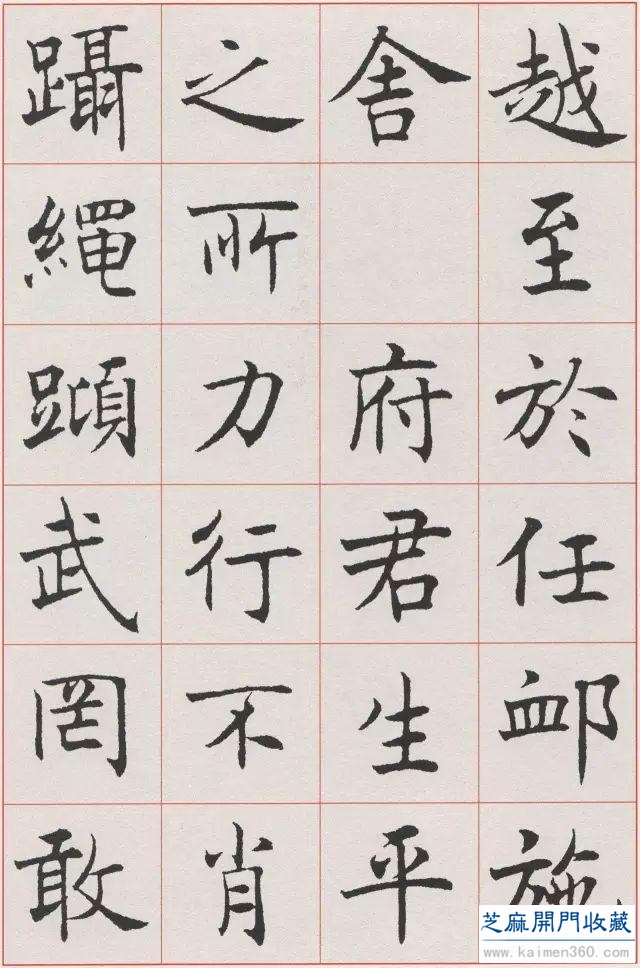 越至於任卹施
舍　府君生平
之所力行不肖
躡繩蹞武罔敢
芝麻開門收藏
www.kaimen360.com